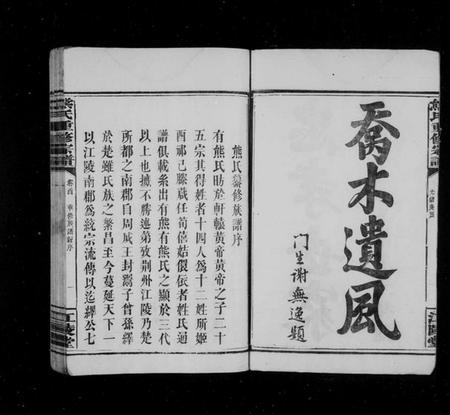 喬木遺風
門生謝無逸題
熊氏重修宗譜
江陵堂
熊氏纂修族譜序
有熊氏昉於軒轅黃帝黃帝之子二十
五宗其得姓者十四人爲十二姓所姬
酉祁己滕葴任荀僖姞儇依者姓氏通
譜俱載系出有熊有熊氏之顯於三代
以上也攄不勝述第攷荆州江陵乃楚
所都之南郡自周成王封鬻子曾孫繹
於楚雖氏族之繁昌至今蔓延天下一
以江陵南郡爲統宗流傳以迄繹公七
熊氏重修宗譜
卷首
江陵堂